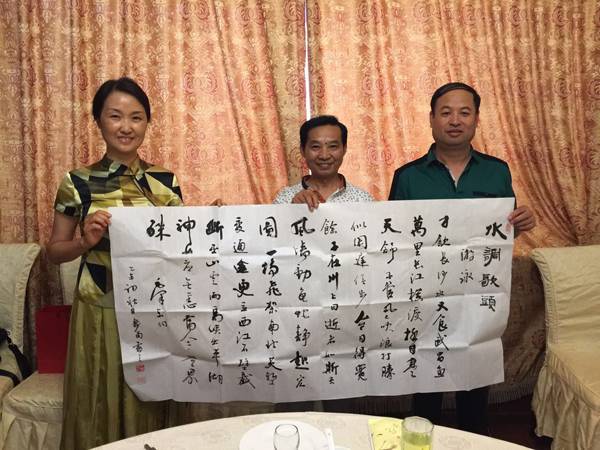 水調歌頭
游泳
才飲長沙水又食武昌魚
萬里長江橫渡極目楚
天舒不管風吹浪打勝
似閑庭信步今日得寬
餘子在川上曰逝者如斯夫
風檣動龜蛇靜起宏
圖一橋飛架南北天塹
變通途更立西江石壁截
斷巫山雲雨高峽出平湖
神女應無恙當今世界
殊